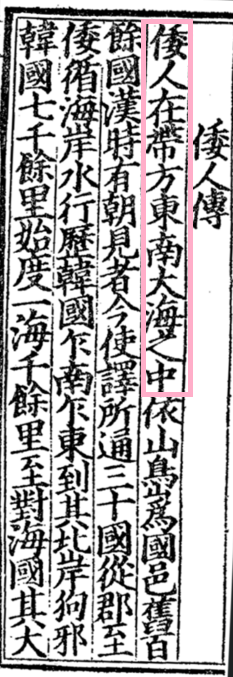 倭人傳
倭人在帶方東南大海之中依山㠀爲國邑舊百
餘國漢時有朝見者今使譯所通三十國從郡至
倭循海岸水行歷韓國乍南乍東到其北岸狗邪
韓國七千餘里始度一海千餘里至對海國其大